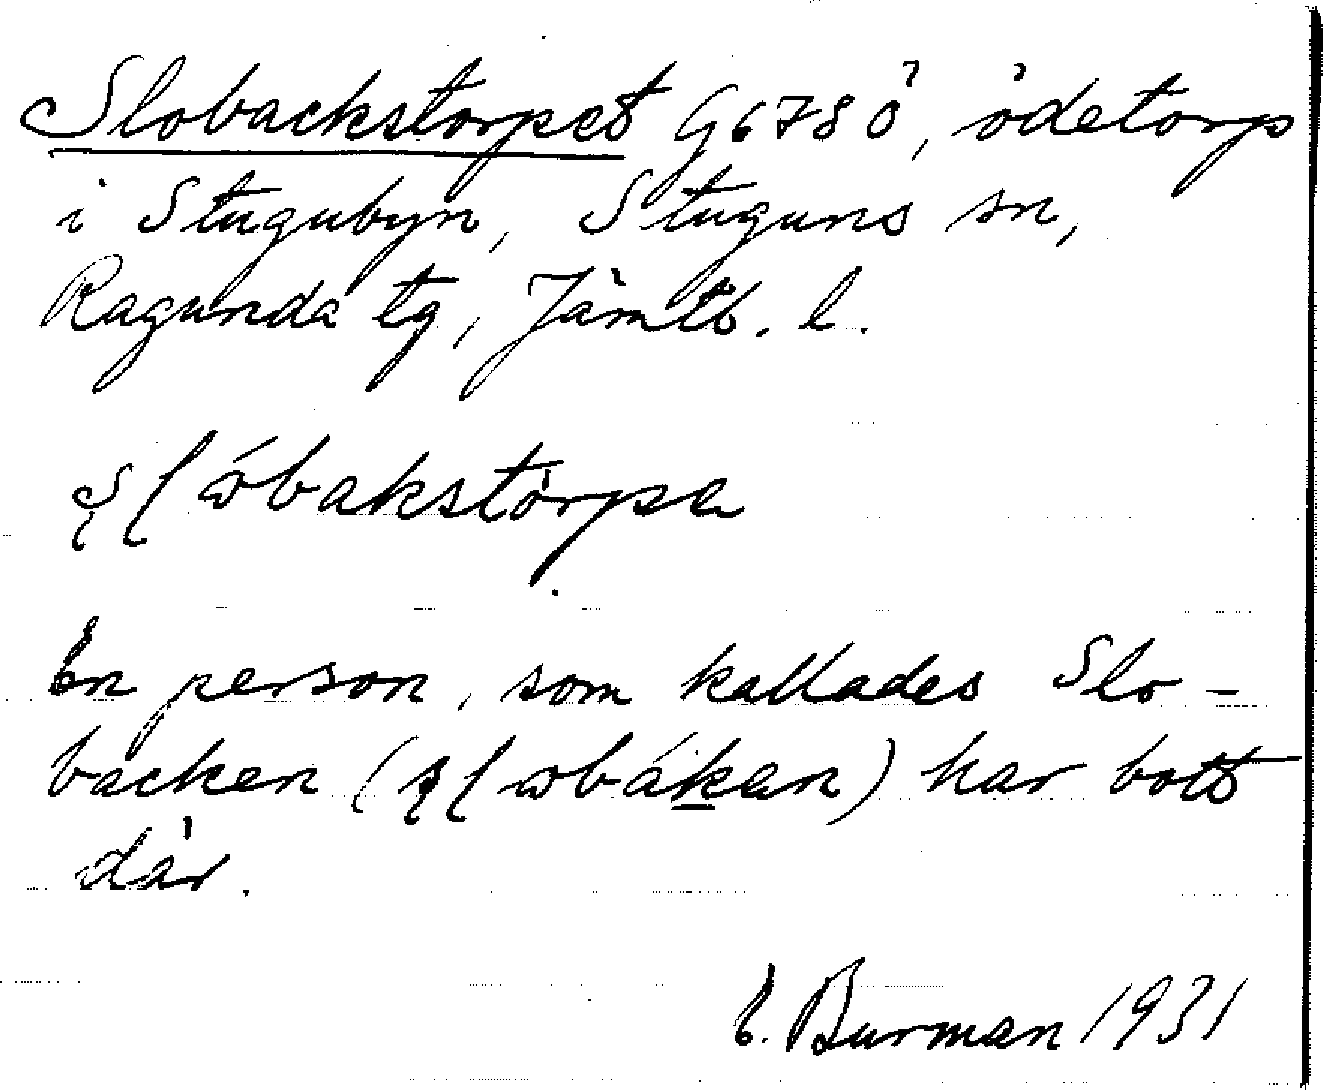 Slobackstorpet G6780, ödetorp
i Stugubyn, Stuguns sn,
Ragunda tg, Jämtl. l.
En person, som kallades Slo-
backen har bott
där.
E. Burman 1931